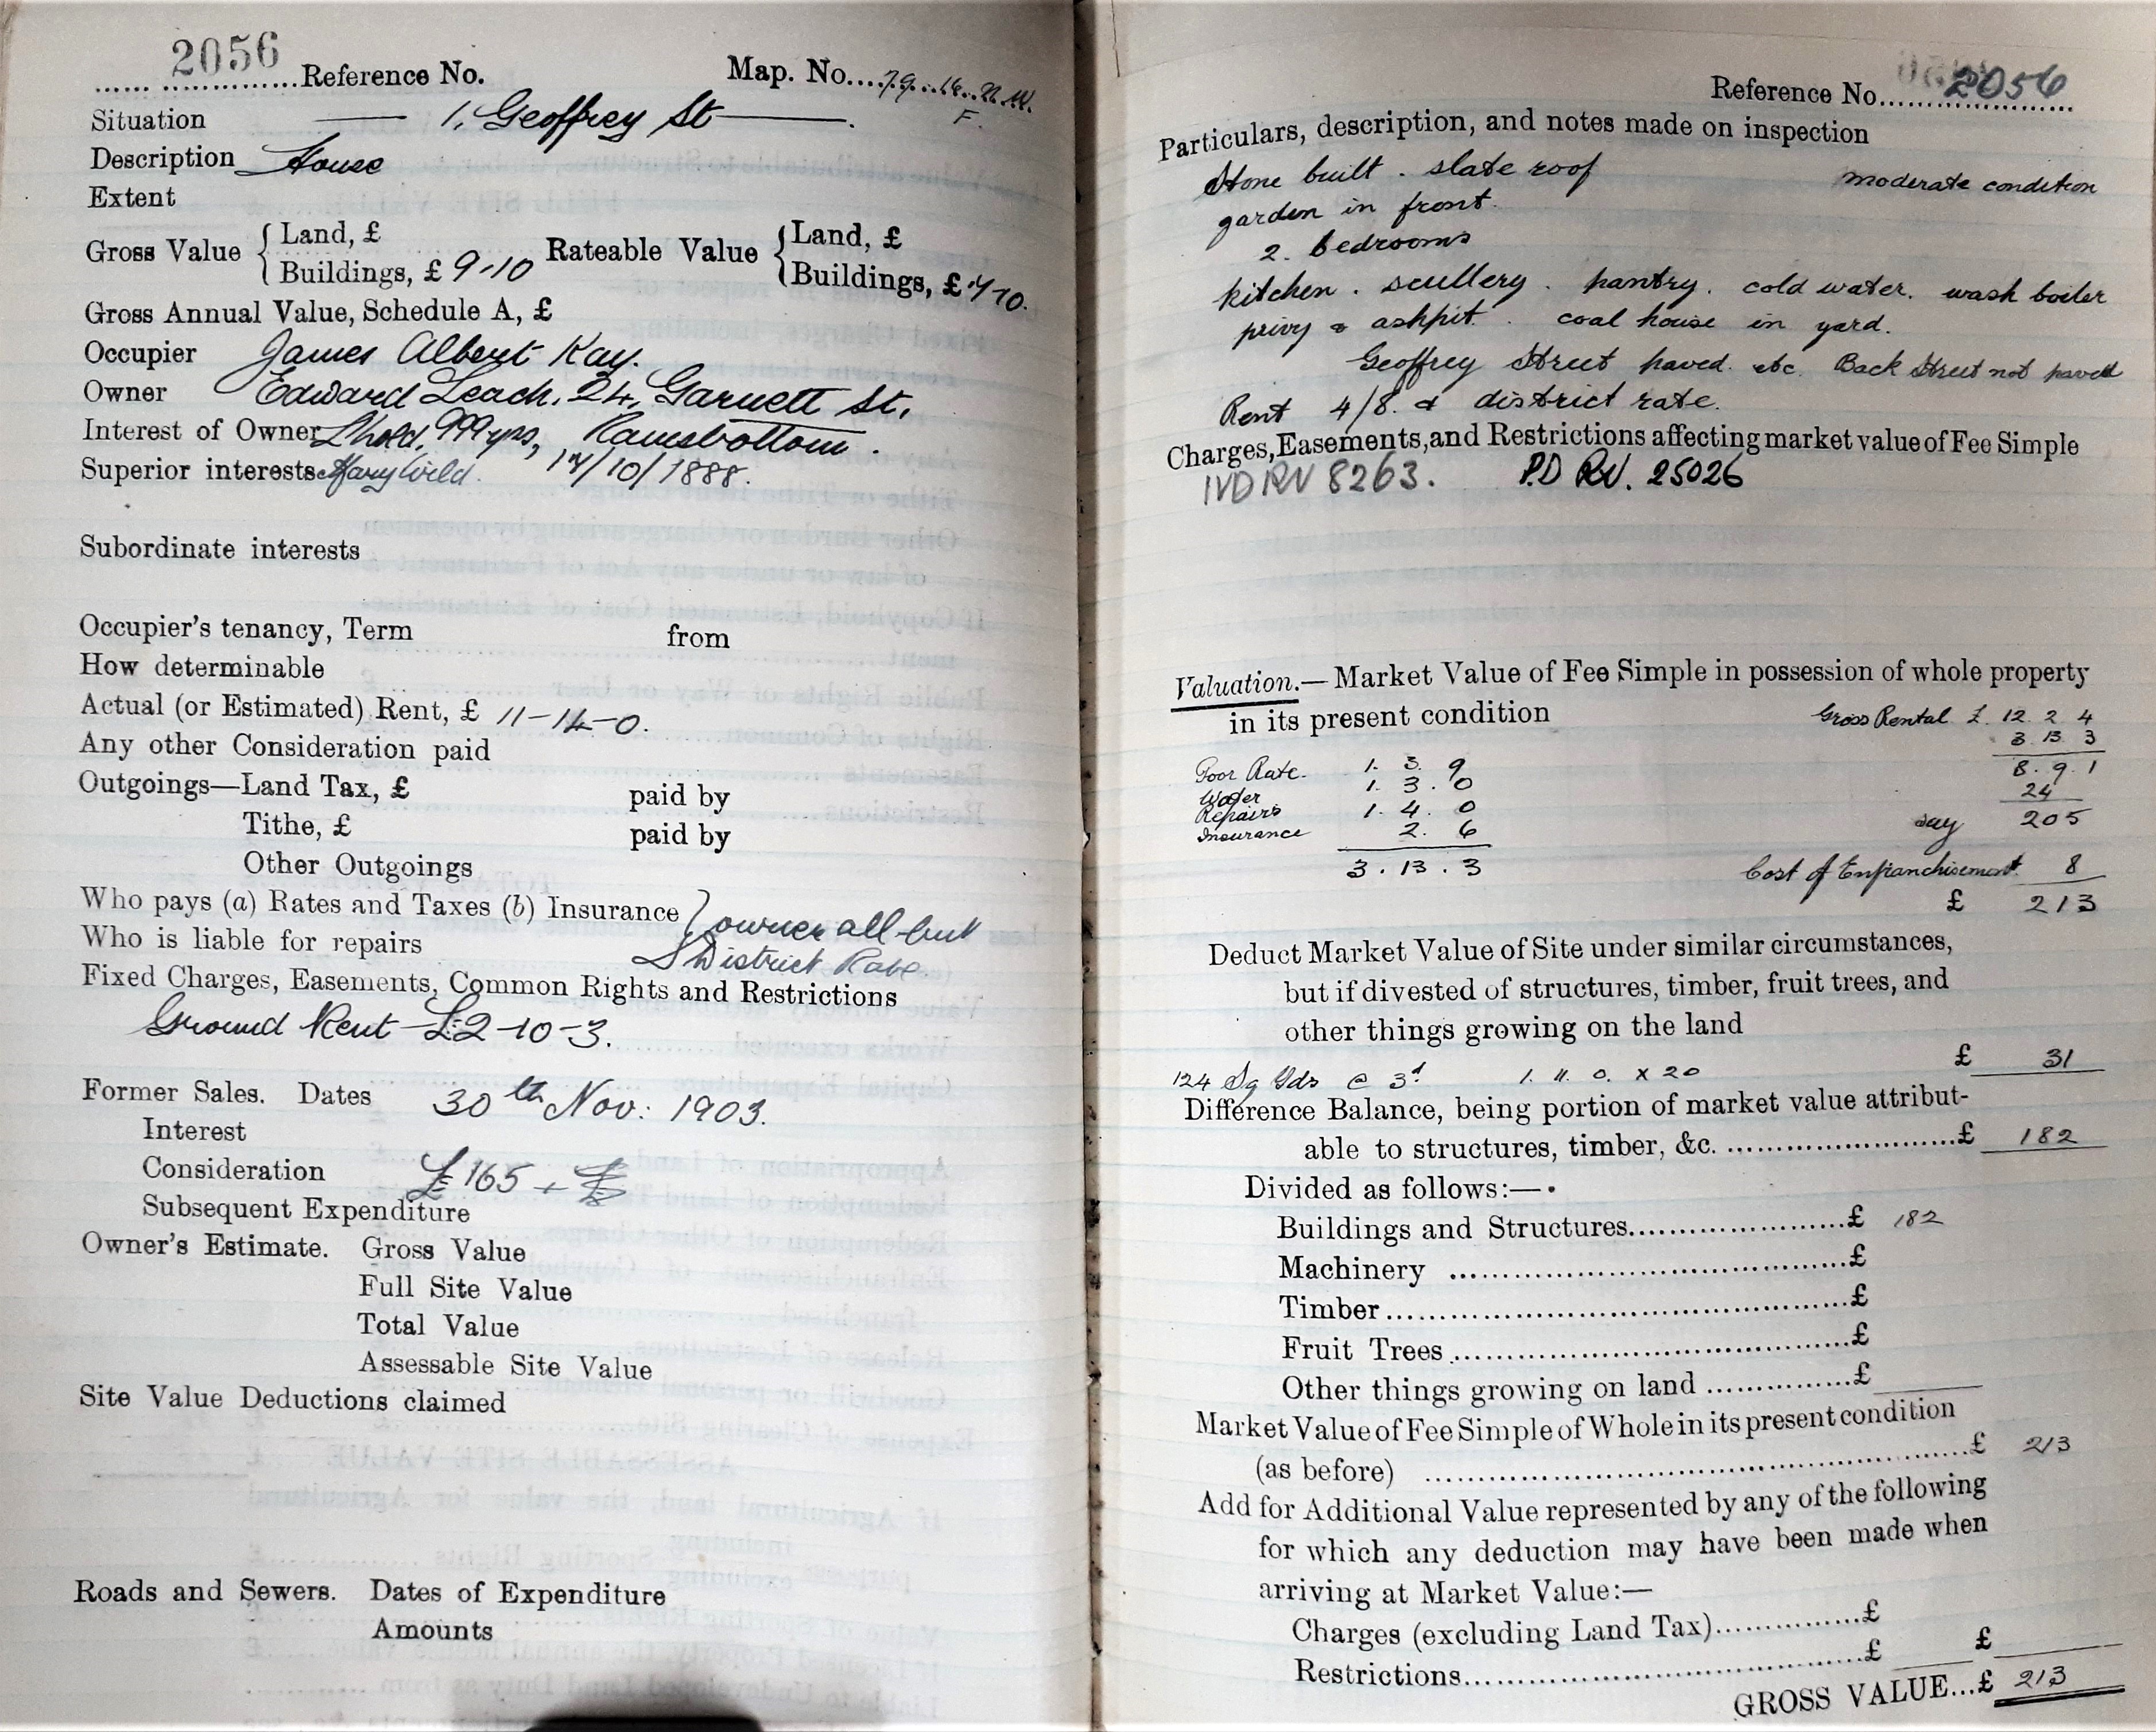 2056 Reference No. Map. No.
Situation 1, Geoffrey St
Description House
Extent
Gross Value { Land, £ Rateable Value { Land, £
Buildings, £ 9-10 Buildings, £
Gross Annual Value, Schedule A, £
Occupier James Albert Kay.
Owner Edward Leach, 24, Garnett St,
Interest of Owner Lhold, 999 yrs, Ramsbottom.
Superior interests Mary Wild. /10/1888.
Subordinate interests
Occupier's tenancy, Term from
How determinable
Actual (or Estimated) Rent, £ 11-14-0.
Any other Consideration paid
Outgoings—Land Tax, £ paid by
Tithe, £ paid by
Other Outgoings
Who pays (a) Rates and Taxes (b) Insurance } owner all but
Who is liable for repairs District Rate.
Fixed Charges, Easements, Common Rights and Restrictions
Ground Rent £2-10-3.
Former Sales. Dates 30th Nov: 1903.
Interest
Consideration £165
Subsequent Expenditure
Owner's Estimate. Gross Value
Full Site Value
Total Value
Assessable Site Value
Site Value Deductions claimed
Roads and Sewers. Dates of Expenditure
Amounts
Reference No. 2056
Particulars, description, and notes made on inspection
Stone built . slate roof moderate condition
garden in front.
2. bedrooms
kitchen . scullery . pantry . cold water. wash boiler
privy & ashpit . coal house in yard.
Geoffrey Street paved. etc. Back Street not paved
Rent 4/8. & district rate.
Charges, Easements, and Restrictions affecting market value of Fee Simple
IVD RV 8263. P.D RV. 25026
Valuation.— Market Value of Fee Simple in possession of whole property
in its present condition Gross Rental £ 12. 2 4
3. 13 3
Poor Rate. 1. 3. 9 8. 9. 1
Water 1. 3. 0 24
Repairs 1. 4. 0 say 205
Insurance 2. 6
3. 13. 3 Cost of Enfranchisement 8
£ 213
Deduct Market Value of Site under similar circumstances,
but if divested of structures, timber, fruit trees, and
other things growing on the land
124 Sq Yds @ 3d 1. 11. 0. x 20 £ 31
Difference Balance, being portion of market value attribut-
able to structures, timber, &c. £ 182
Divided as follows:—
Buildings and Structures £ 182
Machinery £
Timber £
Fruit Trees £
Other things growing on land £
Market Value of Fee Simple of Whole in its present condition
(as before) £ 213
Add for Additional Value represented by any of the following
for which any deduction may have been made when
arriving at Market Value:—
Charges (excluding Land Tax) £
Restrictions £ £
GROSS VALUE...£ 213